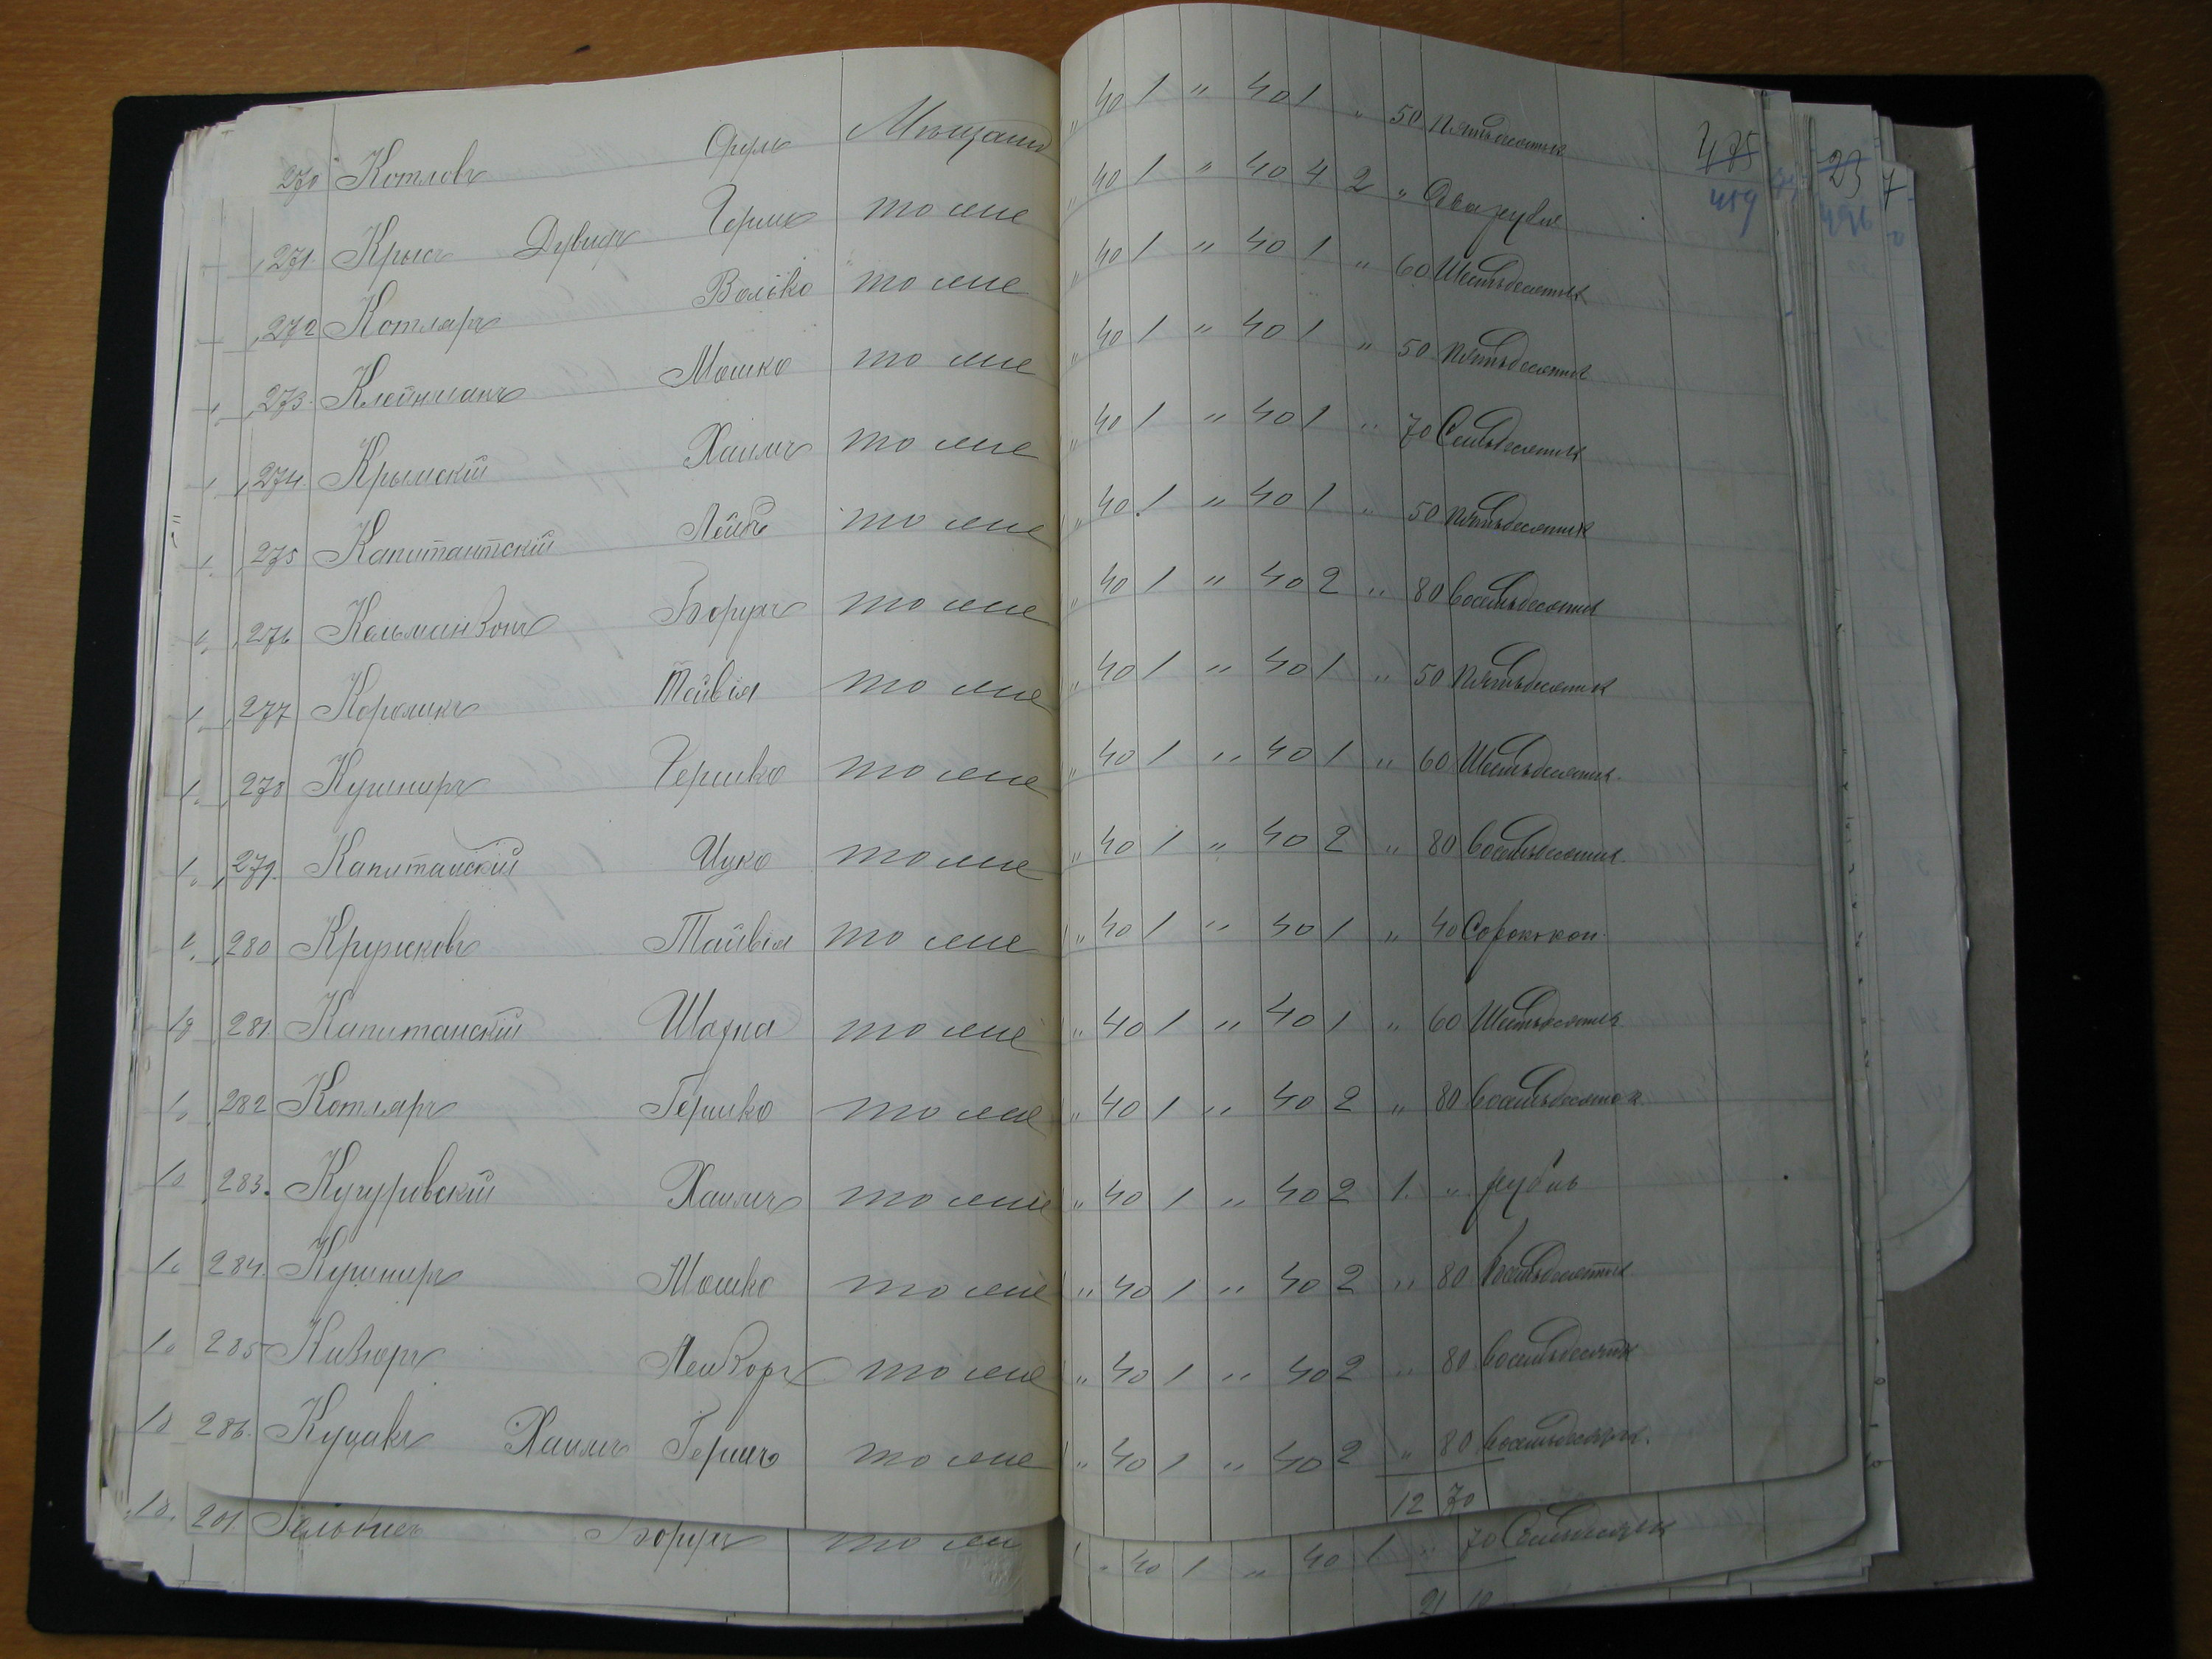 270 Котловъ Сруль Мѣщанинъ „ 40 1 „ 40 1 „ 50 Пятьдесятъ к 475 23 7
459 496
271. Крысъ Дувидъ Герша то же „ 40 1 „ 40 4 2 „ Два рубля
272 Котляръ Волько то же „ 40 1 „ 40 1 „ 60 Шестьдесятъ к
273. Клейманъ Мошко то же „ 40 1 „ 40 1 „ 50 Пятьдесятъ к
274. Крымскій Хаимъ то же „ 40 1 „ 40 1 „ 70 Семьдесятъ к
275 Капитантскій Лейбъ то же „ 40 1 „ 40 1 „ 50 Пятьдесятъ к
276 Кельманзонъ Борухъ то же „ 40 1 „ 40 2 „ 80 Восемьдесятъ к
277 Короликъ Тейвія то же „ 40 1 „ 40 1 „ 50 Пятьдесятъ к
278 Кушниръ Гершко то же „ 40 1 „ 40 1 „ 60 Шестьдесятъ к.
279. Капитанскій Ицко то же „ 40 1 „ 40 2 „ 80 Восемьдесятъ к.
280 Кружковъ Тайвія то же „ 40 1 „ 40 1 „ 40 Сорокъ коп.
281. Капитанскій Шахна то же „ 40 1 „ 40 1 „ 60 Шестьдесятъ к
282 Котляръ Гершко то же „ 40 1 „ 40 2 „ 80 Восемьдесятъ к
283. Хаимъ то же „ 40 1 „ 40 2 1. „ рубль
284. Кушниръ Мошко то же „ 40 1 „ 40 2 „ 80 Восемьдесятъ к
285 то же „ 40 1 „ 40 2 „ 80 Восемьдесятъ к
286. Куцакъ Хаимъ Гершъ то же „ 40 1 „ 40 2 „ 80 Восемьдесятъ к.
12 70
201 Борухъ то же „ 40 1 „ 40 1 „ 70 Семьдесятъ к